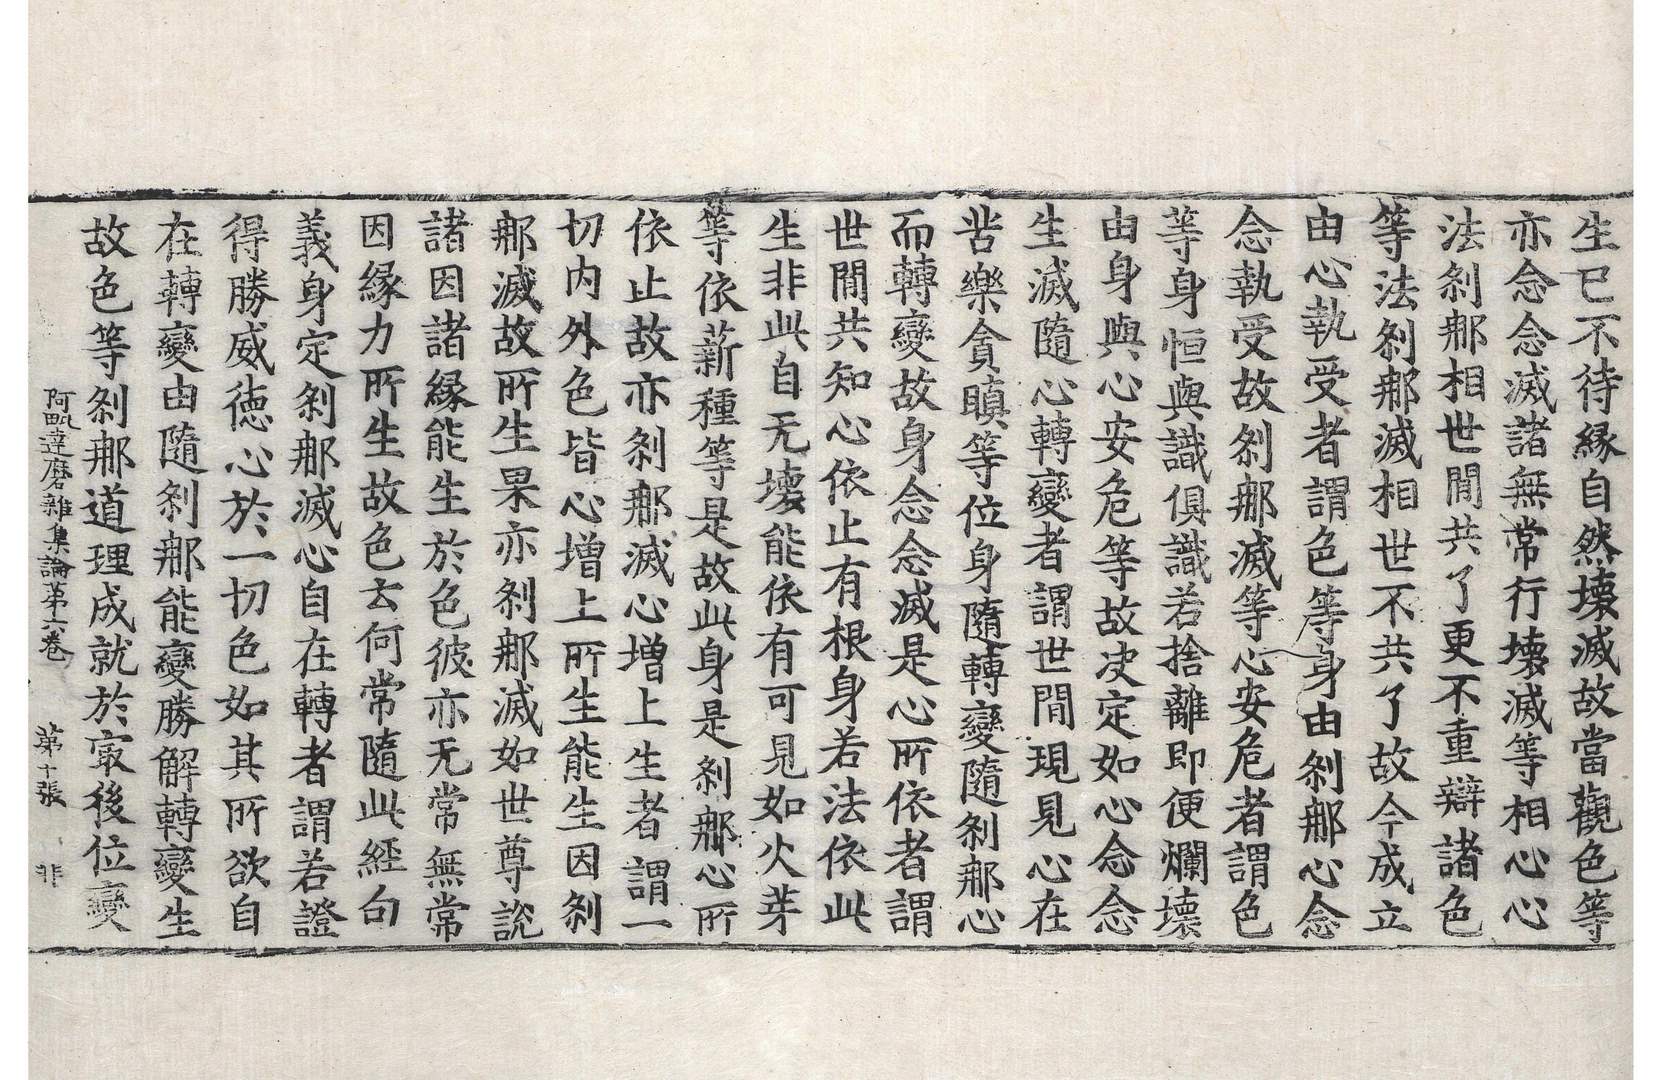 生已不待緣自然壞滅故當觀色等
亦念念滅諸無常行壞滅等相心心
法刹那相世間共了更不重辯諸色
等法刹那滅相世不共了故今成立
由心執受者謂色等身由刹那心念
念執受故刹那滅等心安危者謂色
等身恒與識俱識若捨離即便爛壞
由身與心安危等故决定如心念念
生滅隨心轉變者謂世間現見心在
苦樂貪瞋等位身隨轉變隨刹那心
而轉變故身念念滅是心所依者謂
世間共知心依止有根身若法依此
生非此自无壞能依有可見如火芽
等依薪種等是故此身是刹那心所
依止故亦刹那滅心增上生者謂一
切内外色皆心增上所生能生因刹
那滅故所生果亦刹那滅如世尊說
諸因諸緣能生於色彼亦无常無常
因緣力所生故色去何常隨此經句
義身定刹那滅心自在轉者謂若證
得勝威德心於一切色如其所欲自
在轉變由隨刹那能變勝解轉變生
故色等刹那道理成就於㝡後位變
阿毗達磨雜集論苐六卷 苐十張 非